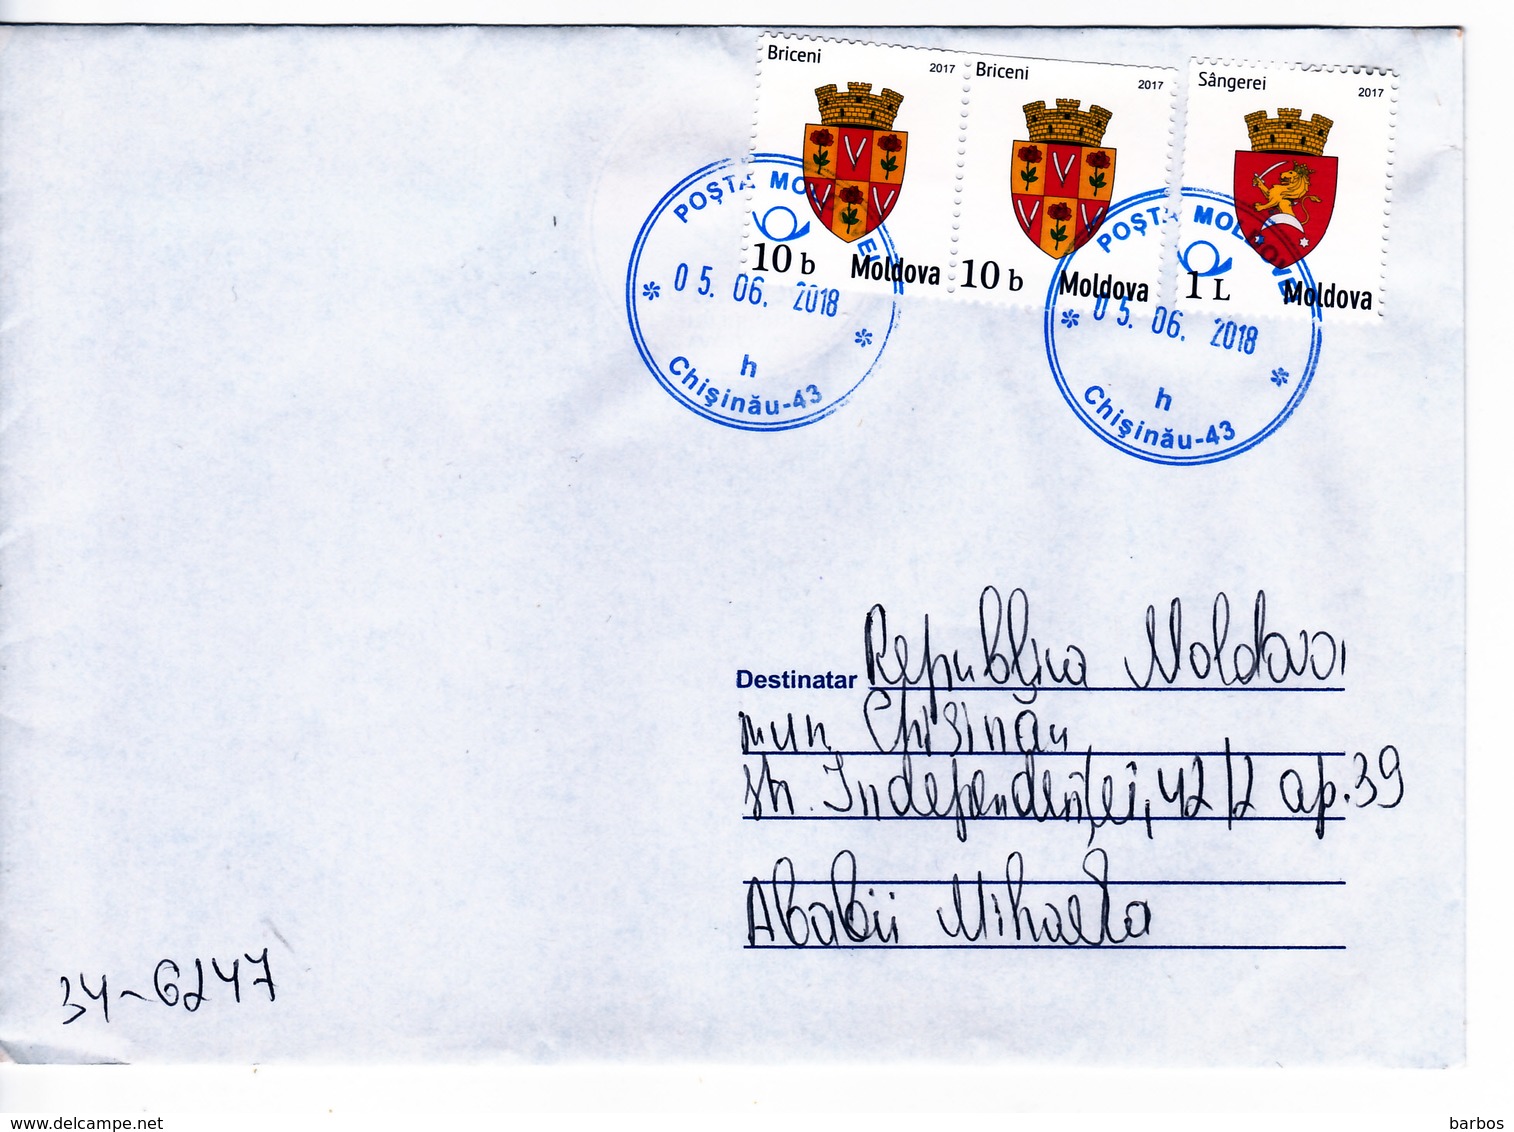 Briceni
2017
10 b
Moldova
Briceni
2017
10 b
Moldova
Sângerei
2017
1 L
Moldova
POȘTA MOLDOVEI
05. 06. 2018
h
Chișinău-43
POȘTA MOLDOVEI
05. 06. 2018
h
Chișinău-43
Destinatar Republica Moldova
mun Chișinău
str. Independenței, 42/2 ap. 39
Ababii Mihaela
34-6247
www.delcampe.net
barbos